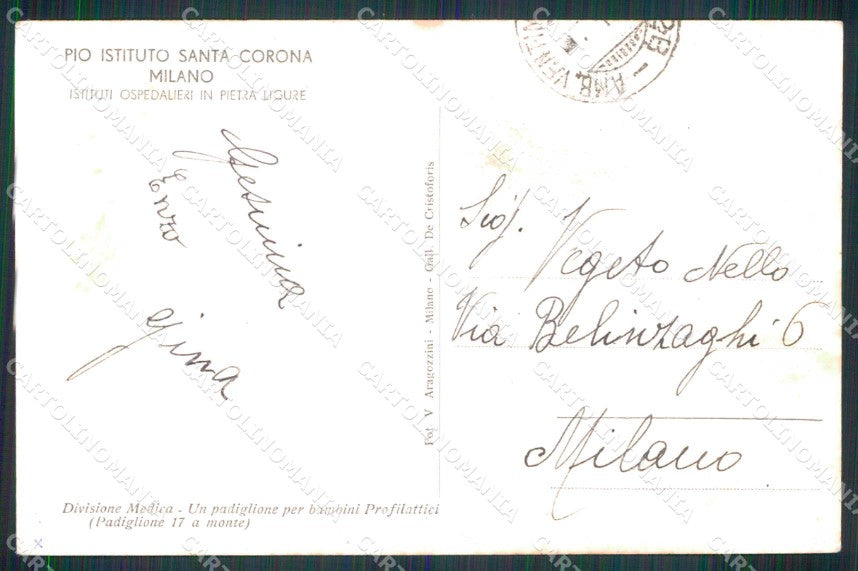 PIO ISTITUTO SANTA CORONA
MILANO
ISTITUTI OSPEDALIERI IN PIETRA LIGURE
Gesuina
Enzo
Gina
Fot V Aragozzini - Milano - Gall. De Cristoforis
Sig. Vegeto Nello
Via Belinzaghi 6
Milano
Divisione Medica - Un padiglione per bambini Profilattici
(Padiglione 17 a monte)
AMB. VENTIM
CARTOLINOMANIA